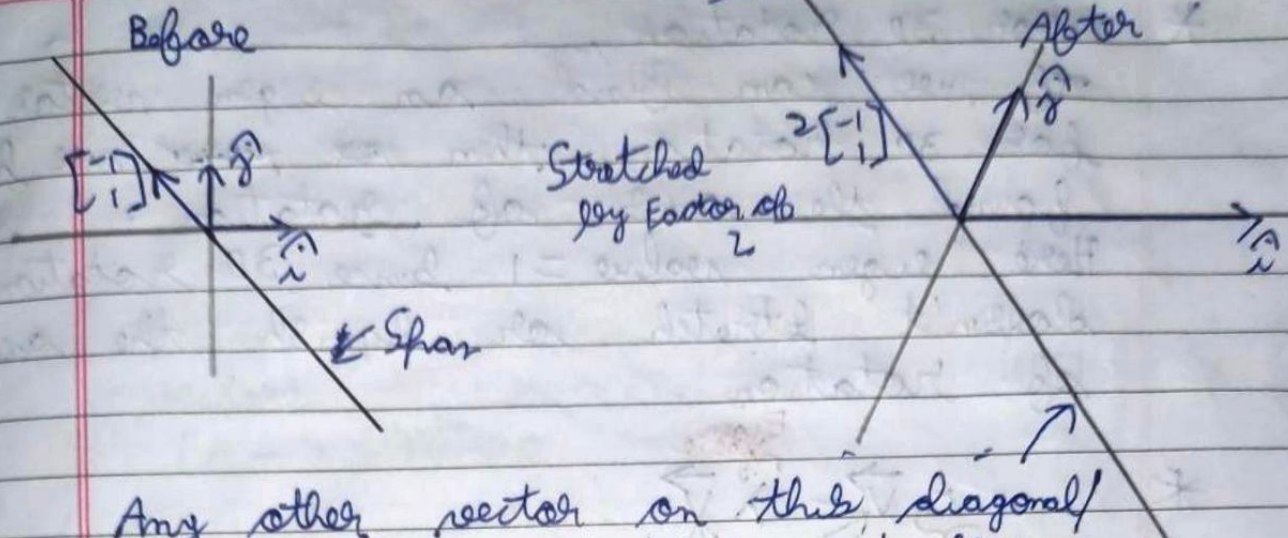 Before
After
[-1 1]
ĵ
î
Span
Stretched
by Factor of
2
2[-1 1]
ĵ
î
Any other vector on this diagonal/